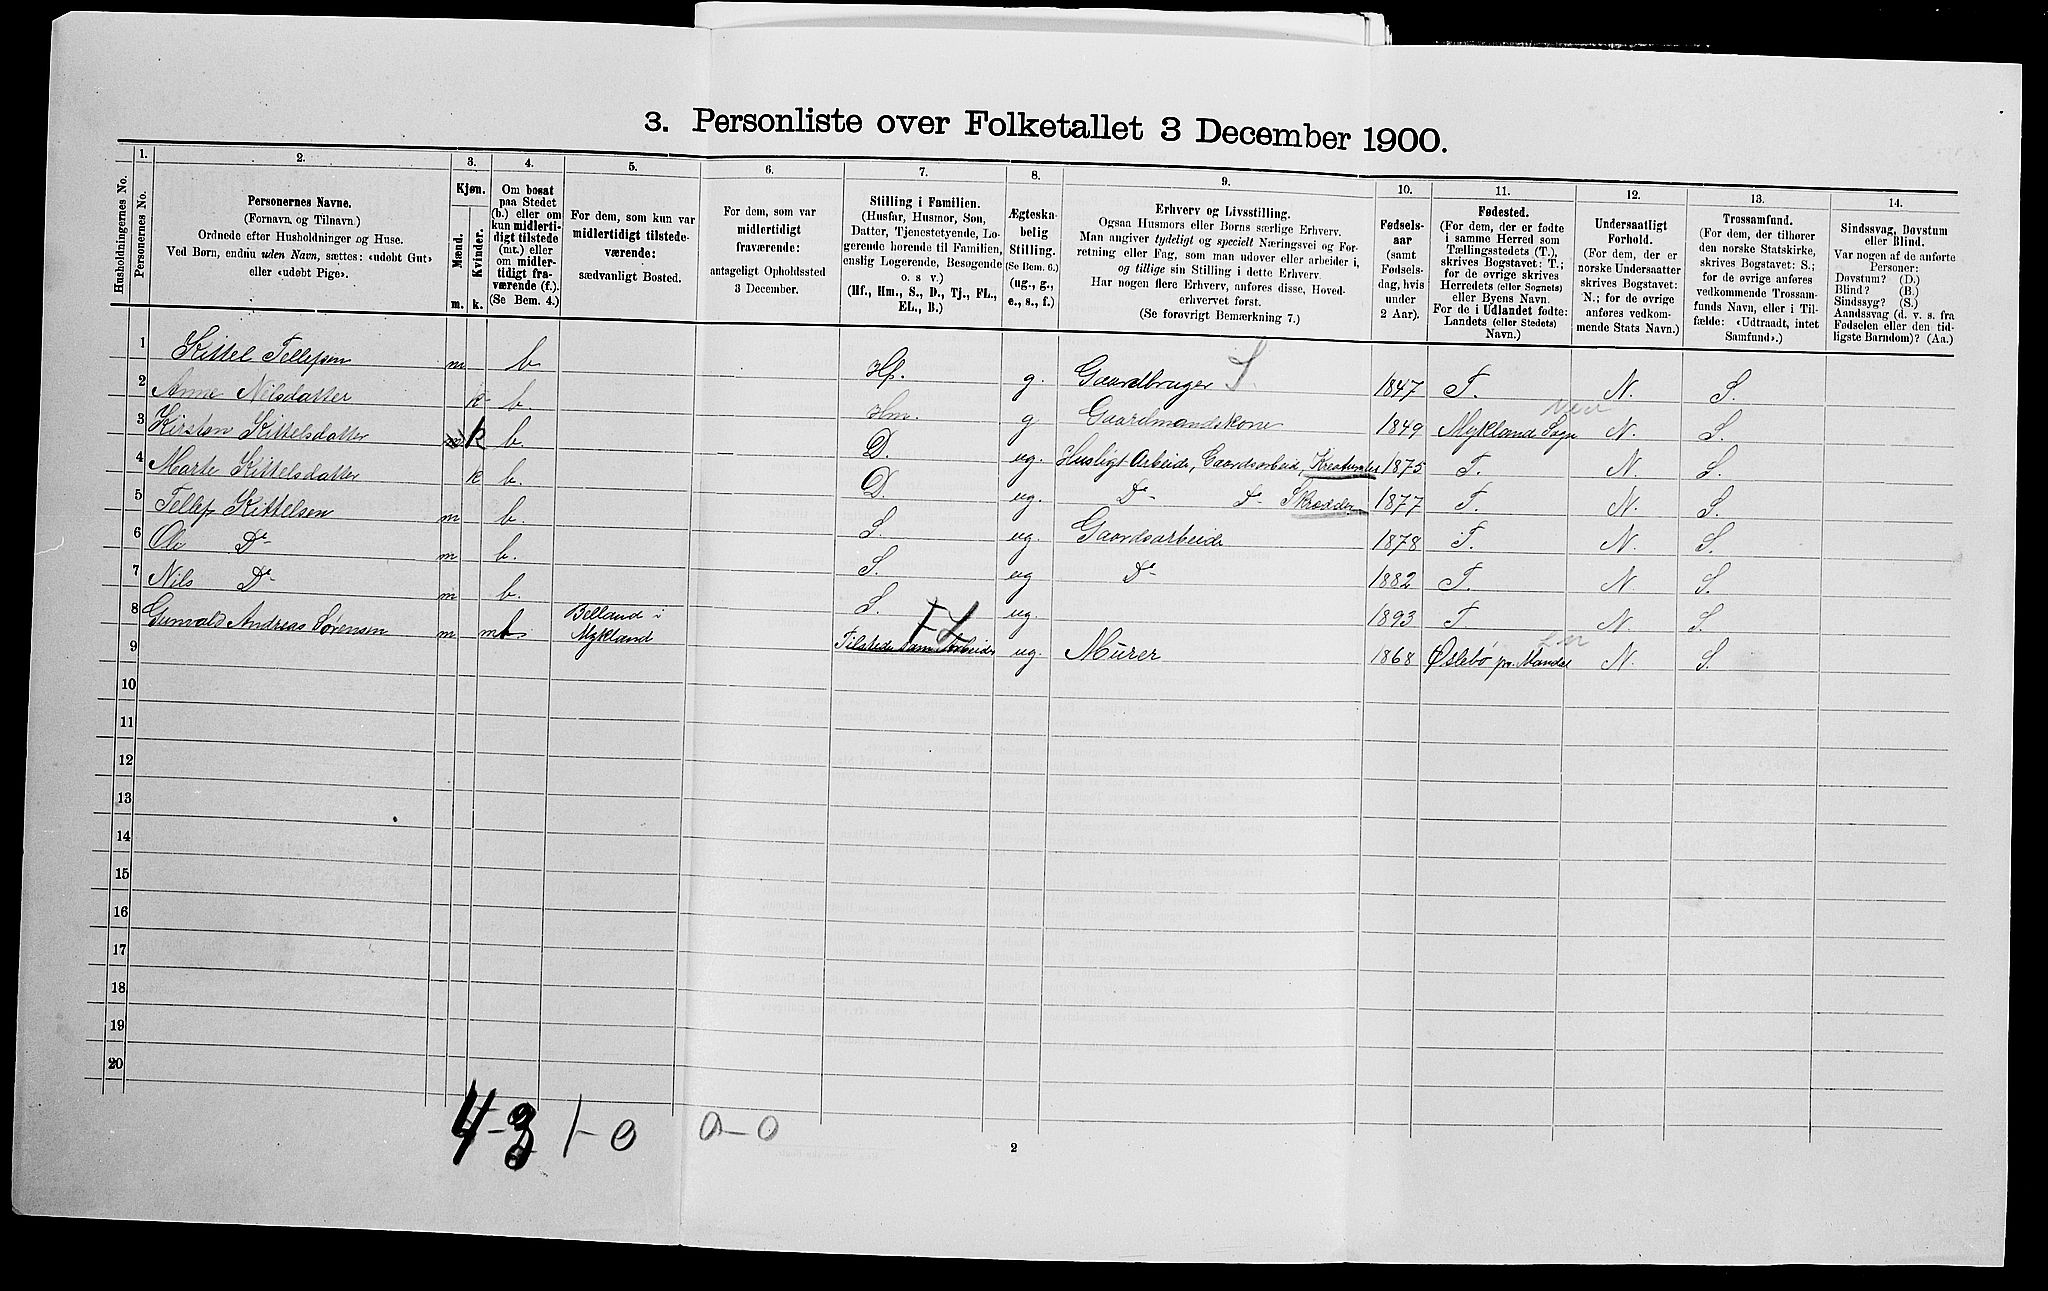 3. Personliste over Folketallet 3 December 1900.
1. 2. 3. 4. 5. 6. 7. 8. 9. 10. 11. 12. 13. 14.
Husholdningernes No.
Personernes No.
Personernes Navne.
(Fornavn og Tilnavn.)
Ordnede efter Husholdninger og Huse.
Ved Børn, endnu uden Navn, sættes: «udøbt Gut»
eller «udøbt Pige».
Kjøn.
Mænd.
Kvinder.
m. k.
Om bosat
paa Stedet
(b.) eller om
kun midlerti-
digt tilstede
(mt.) eller
om midler-
tidigt fra-
værende (f.).
(Se Bem. 4.)
For dem, som kun var
midlertidigt tilstede-
værende:
sædvanligt Bosted.
For dem, som var
midlertidigt
fraværende:
antageligt Opholdssted
3 December.
Stilling i Familien.
(Husfar, Husmor, Søn,
Datter, Tjenestetyende, Lo-
gerende hørende til Familien,
enslig Logerende, Besøgende
o. s. v.)
(Hf., Hm., S., D., Tj., FL.,
EL., B.)
Ægteska-
belig
Stilling.
(Se Bem. 6.)
(ug., g.,
e., s., f.)
Erhverv og Livsstilling.
Ogsaa Husmors eller Børns særlige Erhverv.
Man angiver tydeligt og specielt Næringsvei og For-
retning eller Fag, som man udøver eller arbeider i,
og tillige sin Stilling i dette Erhverv.
Har nogen flere Erhverv, anføres disse, Hoved-
erhvervet først.
(Se forøvrigt Bemærkning 7.)
Fødsels-
aar
(samt
Fødsels-
dag, hvis
under
2 Aar).
Fødested.
(For dem, der er fødte
i samme Herred som
Tællingsstedets (T.),
skrives Bogstavet: T.;
for de øvrige skrives
Herredets (eller Sognets)
eller Byens Navn.
For de i Udlandet fødte:
Landets (eller Stedets)
Navn.)
Undersaatligt
Forhold.
(For dem, der er
norske Undersaatter
skrives Bogstavet:
N.; for de øvrige
anføres vedkom-
mende Stats Navn.)
Trossamfund.
(For dem, der tilhører
den norske Statskirke,
skrives Bogstavet: S.;
for de øvrige anføres
vedkommende Trossam-
funds Navn, eller i Til-
fælde: «Udtraadt, intet
Samfund».)
Sindssvag, Døvstum
eller Blind.
Var nogen af de anførte
Personer:
Døvstum? (D.)
Blind? (B.)
Sindssyg? (S.)
Aandssvag (d. v. s. fra
Fødselen eller den tid-
ligste Barndom)? (Aa.)
1 Kittel Tellefsen m b. Hf. g. Gaardbruger S. 1847 T. N. S.
2 Anne Nilsdatter k b. Hm. g Gaardmandskone 1849 Mykland Sogn N. S.
3 Kirsten Kittelsdatter m k b. D. ug. Husligt Arbeide, Gaardsarbeide, 1875 T. N. S.
4 Marte Kittelsdatter k b. D. ug. Do Do Skrædder 1877 T. N. S.
5 Tellef Kittelsen m b. S. ug. Gaardsarbeide 1878 T. N. S.
6 Ole Do m b. S. ug Do 1882 T. N. S.
7 Nils Do m b. S. ug. 1893 T N S.
8 Gunvald Andreas Sørensen m mt Belland i Mykland Tilstede som Arbeider FL ug. Murer 1868 Øslebø pr. Mandal N. S.
9
10
11
12
13
14
15
16
17
18
19
20
4-3 1-0 0-0
2